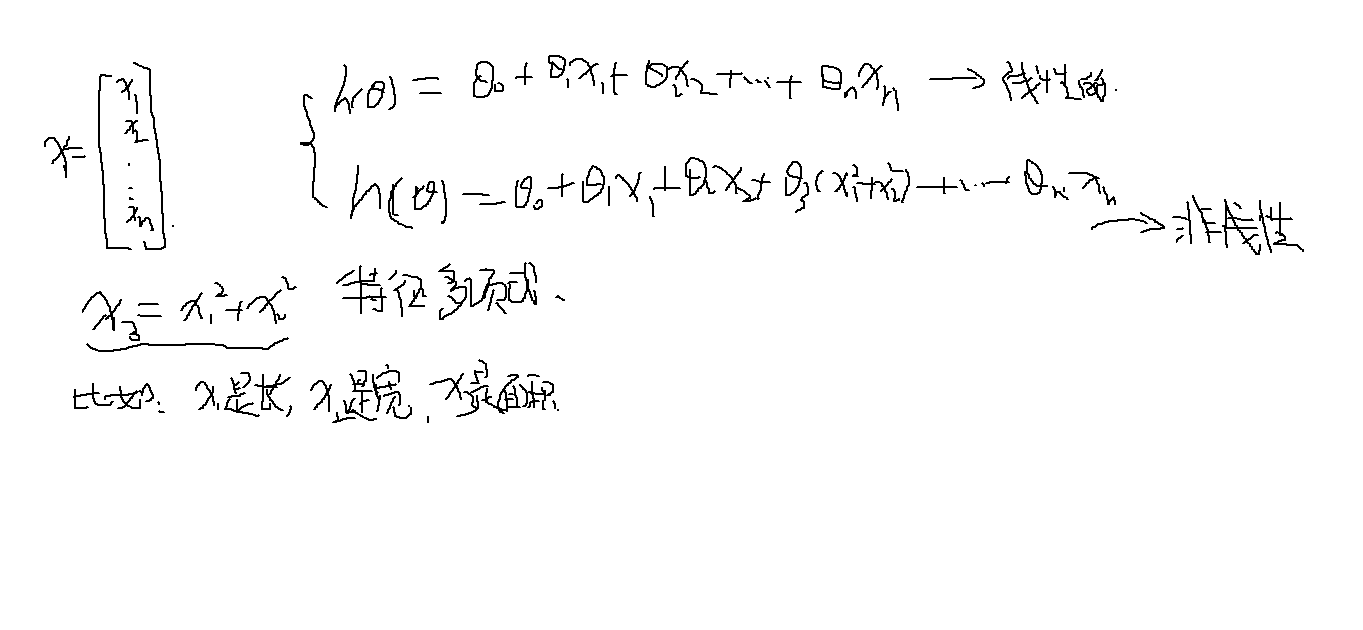 x = [x₁ x₂ ⋮ xₙ]
h(θ) = θ₀ + θ₁x₁ + θ₂x₂ + ... + θₙxₙ → 线性的.
h(θ) = θ₀ + θ₁x₁ + θ₂x₂ + θ₃(x₁²+x₂²) + ... θₙxₙ → 非线性
x₃ = x₁² + x₂² 特征多项式、
比如: x₁是长, x₂是宽, x₃是面积.